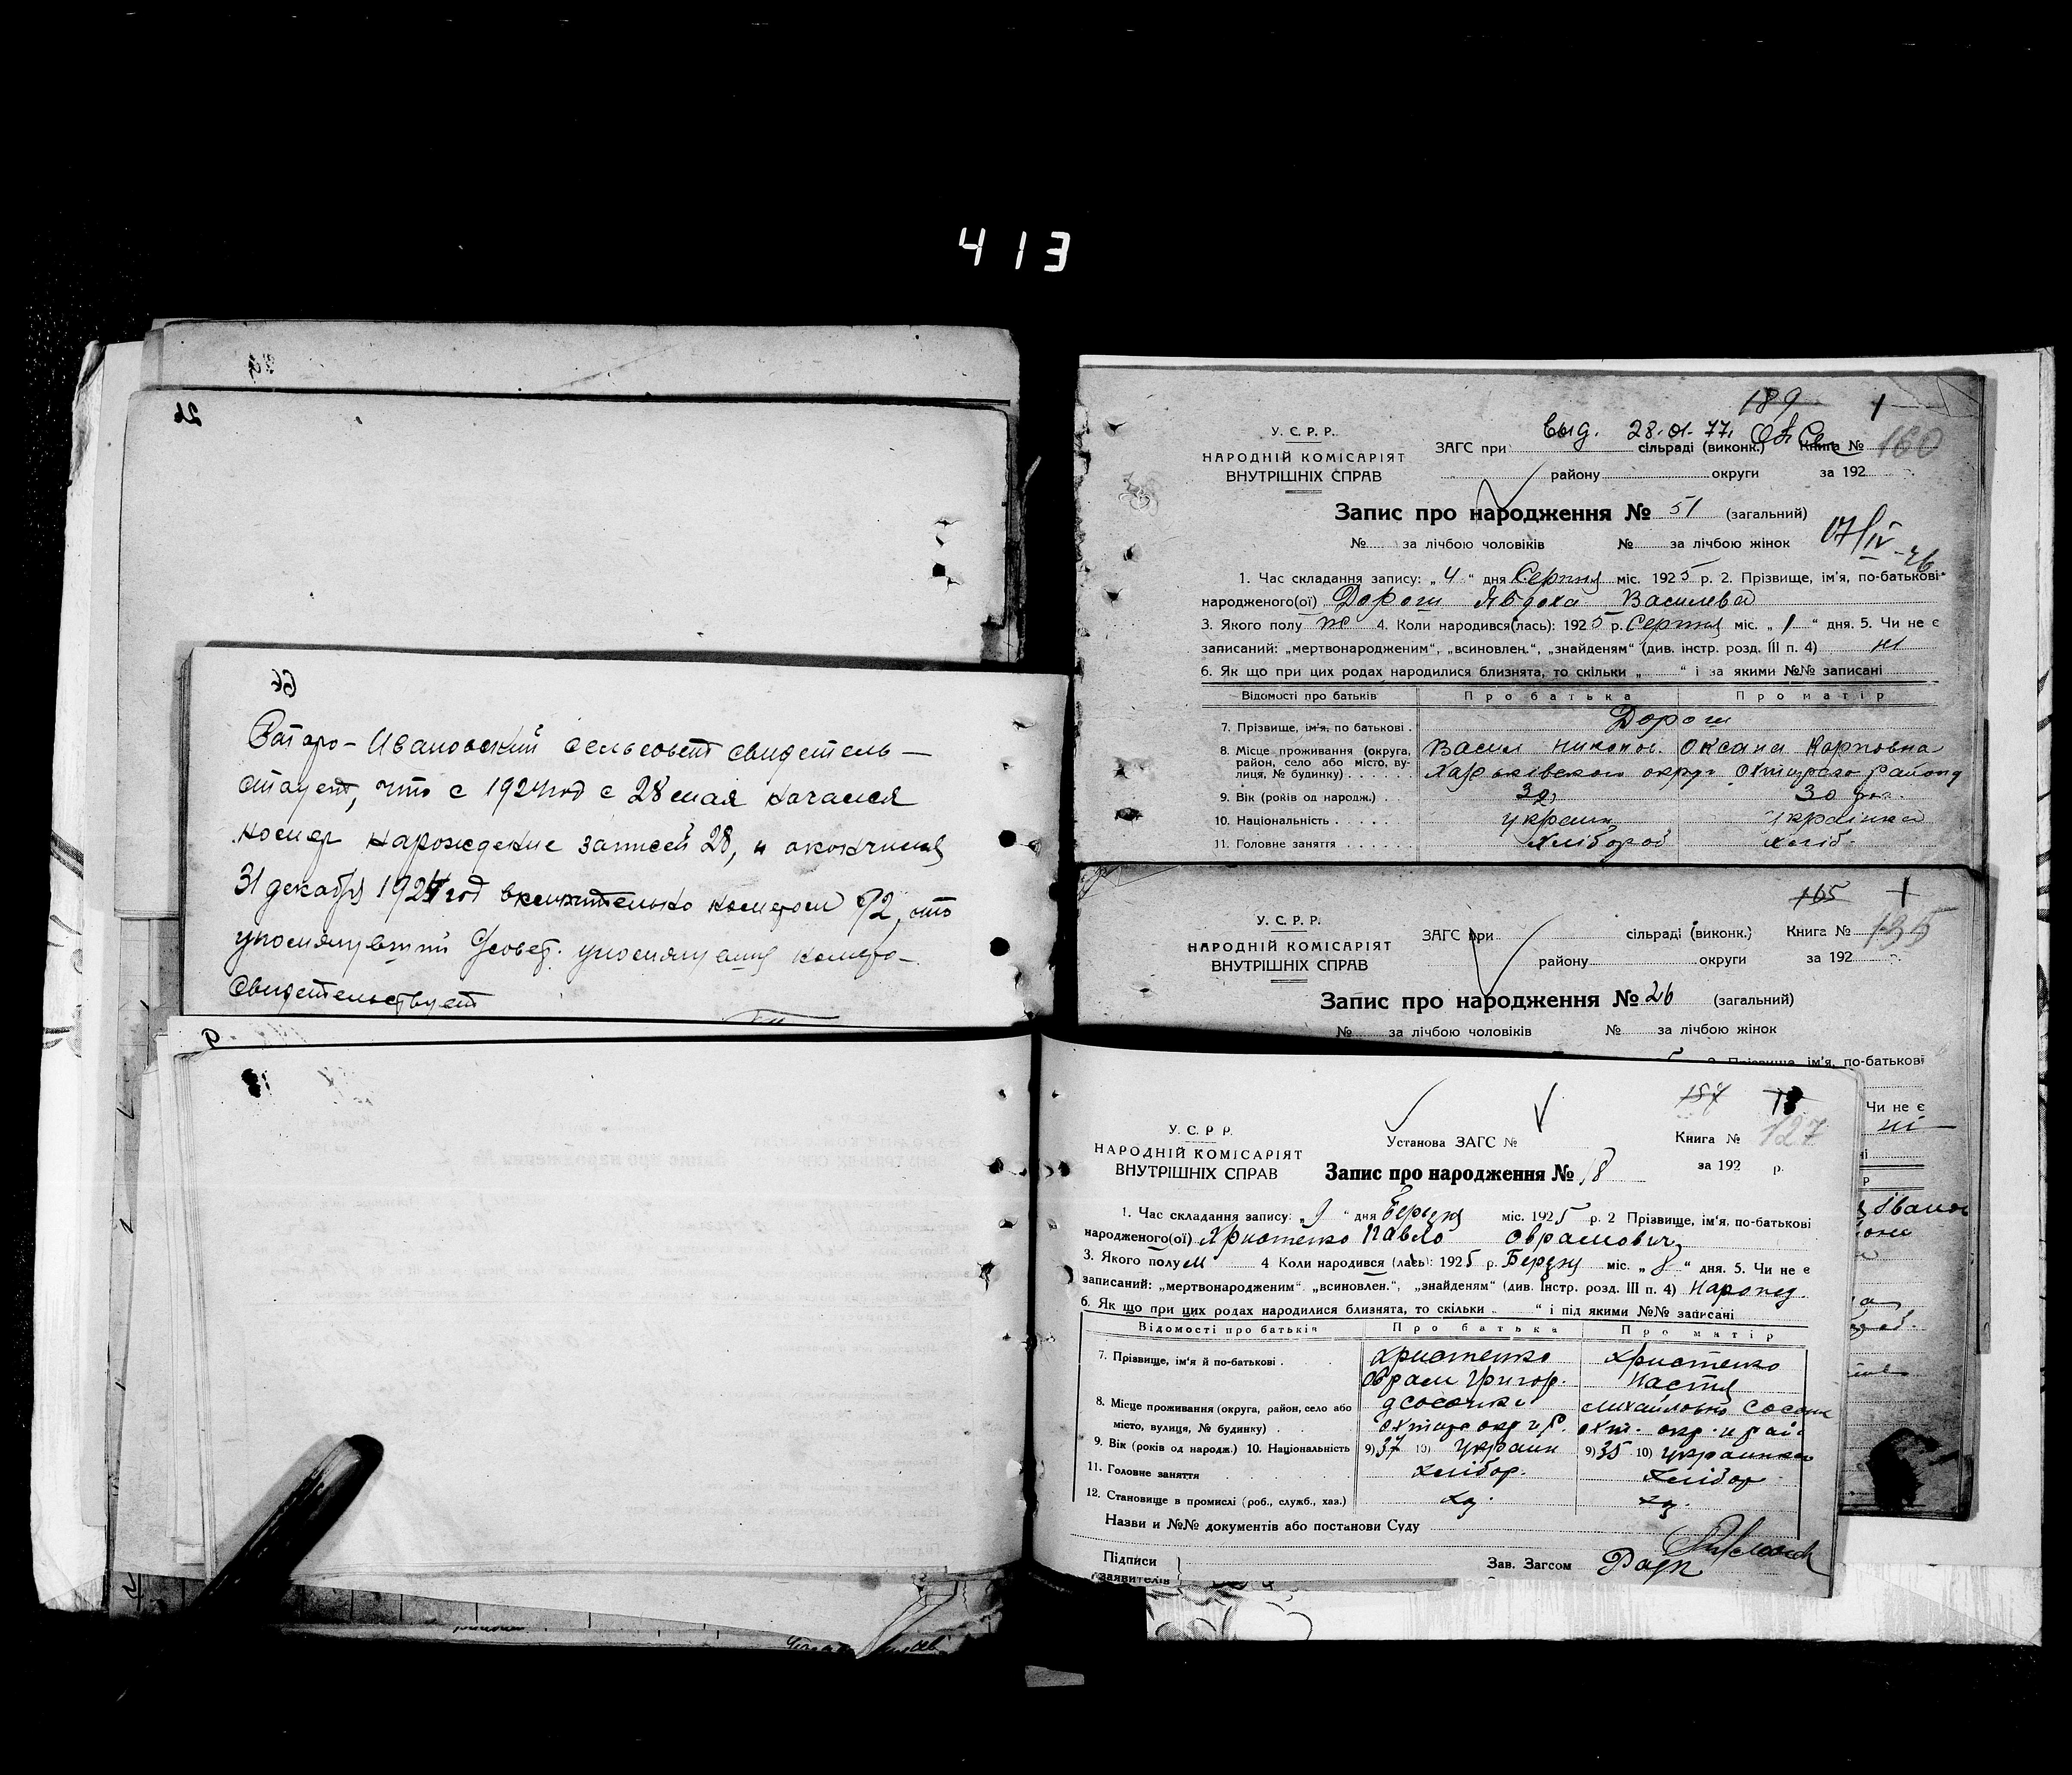 413
26
66
Ватаро-Ивановский сельсовет свидетель-
ствует, что с 1924 год с 28 мая начался
номер нарождение записей 28, и окончился
31 декабря 1924 год включительно номером 92, что
свидетельствует
9
189 1
выд. 28.01.77.
У. С. Р. Р.
НАРОДНІЙ КОМІСАРІЯТ
ВНУТРІШНІХ СПРАВ
ЗАГС при сільраді (виконк.) Книга № 160
району округи за 192
Запис про народження № 51 (загальний)
17/IV-26
№ за лічбою чоловіків № за лічбою жінок
1. Час складання запису: „4“ дня Серпня міс. 1925 р. 2. Прізвище, ім'я, по-батькові
народженого(ої) Дорош Явдоха Василева
3. Якого полу ж 4. Коли народився(лась): 1925 р. Серпня міс. „1“ дня. 5. Чи не є
записаний: „мертвонародженим“, „всиновлен.“, „знайденям“ (див. інстр. розд. III п. 4) ні
6. Як що при цих родах народилися близнята, то скільки „ “ і за якими №№ записані
Відомості про батьків Про батька Про матір
7. Прізвище, ім'я, по батькові . Дорош
8. Місце проживання (округа, Васил Никон. Оксана Карповна
район, село або місто, ву-
лиця, № будинку) Харьківского округ Охтирско району
9. Вік (років од народж.) . 30 30
10. Національність украин українка
11. Головне заняття хлібороб хліб.
165 1
У. С. Р. Р.
НАРОДНІЙ КОМІСАРІЯТ
ВНУТРІШНІХ СПРАВ
ЗАГС при сільраді (виконк.) Книга № 135
району округи за 192
Запис про народження № 26 (загальний)
№ за лічбою чоловіків № за лічбою жінок
2. Прізвище, ім'я, по-батькові
Чи не є
ні
157 18
У. С. Р. Р.
НАРОДНІЙ КОМІСАРІЯТ
ВНУТРІШНІХ СПРАВ
Установа ЗАГС № Книга № 127
Запис про народження № 18 за 192 р.
1. Час складання запису: „9“ дня Березня міс. 1925 р. 2 Прізвище, ім'я, по-батькові
народженого(ої) Христенко Павло Оврамович
3. Якого полу м 4 Коли народився (лась): 1925 р. Березня міс. „8“ дня. 5. Чи не є
записаний: „мертвонародженим“ „всиновлен.“, „знайденям“ (див. Інстр. розд. III п. 4) Народ.
6. Як що при цих родах народилися близнята, то скільки „ “ і під якими №№ записані
Відомості про батьків Про батька Про матір
7. Прізвище, ім'я й по-батькові . Христенко Христенко
Оврам Григор. Настя
8. Місце проживання (округа, район, село або
місто, вулиця, № будинку) . охтирс окр и р. охт. окр. и рай
9. Вік (років од народж.) 10. Національність 9) 37 10) украин 9) 35 10) украинка
11. Головне заняття хлібор. хлібор
12. Становище в промислі (роб., служб., хаз.) хз. хз.
Назви и №№ документів або постанови Суду
Підписи
заявителів
Зав. Загсом